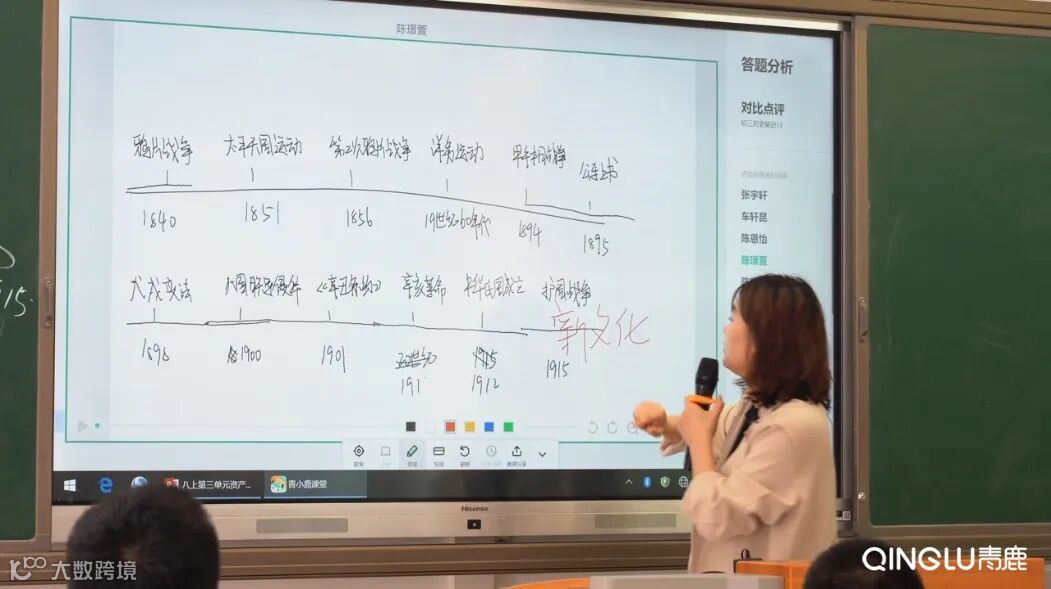 陈璟萱
答题分析
对比点评
初三历史笔记13
点击有照进行点评
张宇轩
车轩昆
陈恩怡
陈璟萱
鸦片战争 太平天国运动 第二次鸦片战争 洋务运动 甲午中日战争 公车上书
1840 1851 1856 19世纪60年代 1894 1895
戊戌变法 八国联军侵华 《辛丑条约》 辛亥革命 中华民国成立 护国战争
新文化
1898 1900 1901 191 1912 1915
15.
八上第三单元资产...
青小鹿课堂
Hisense
QINGLU青鹿
大数跨境